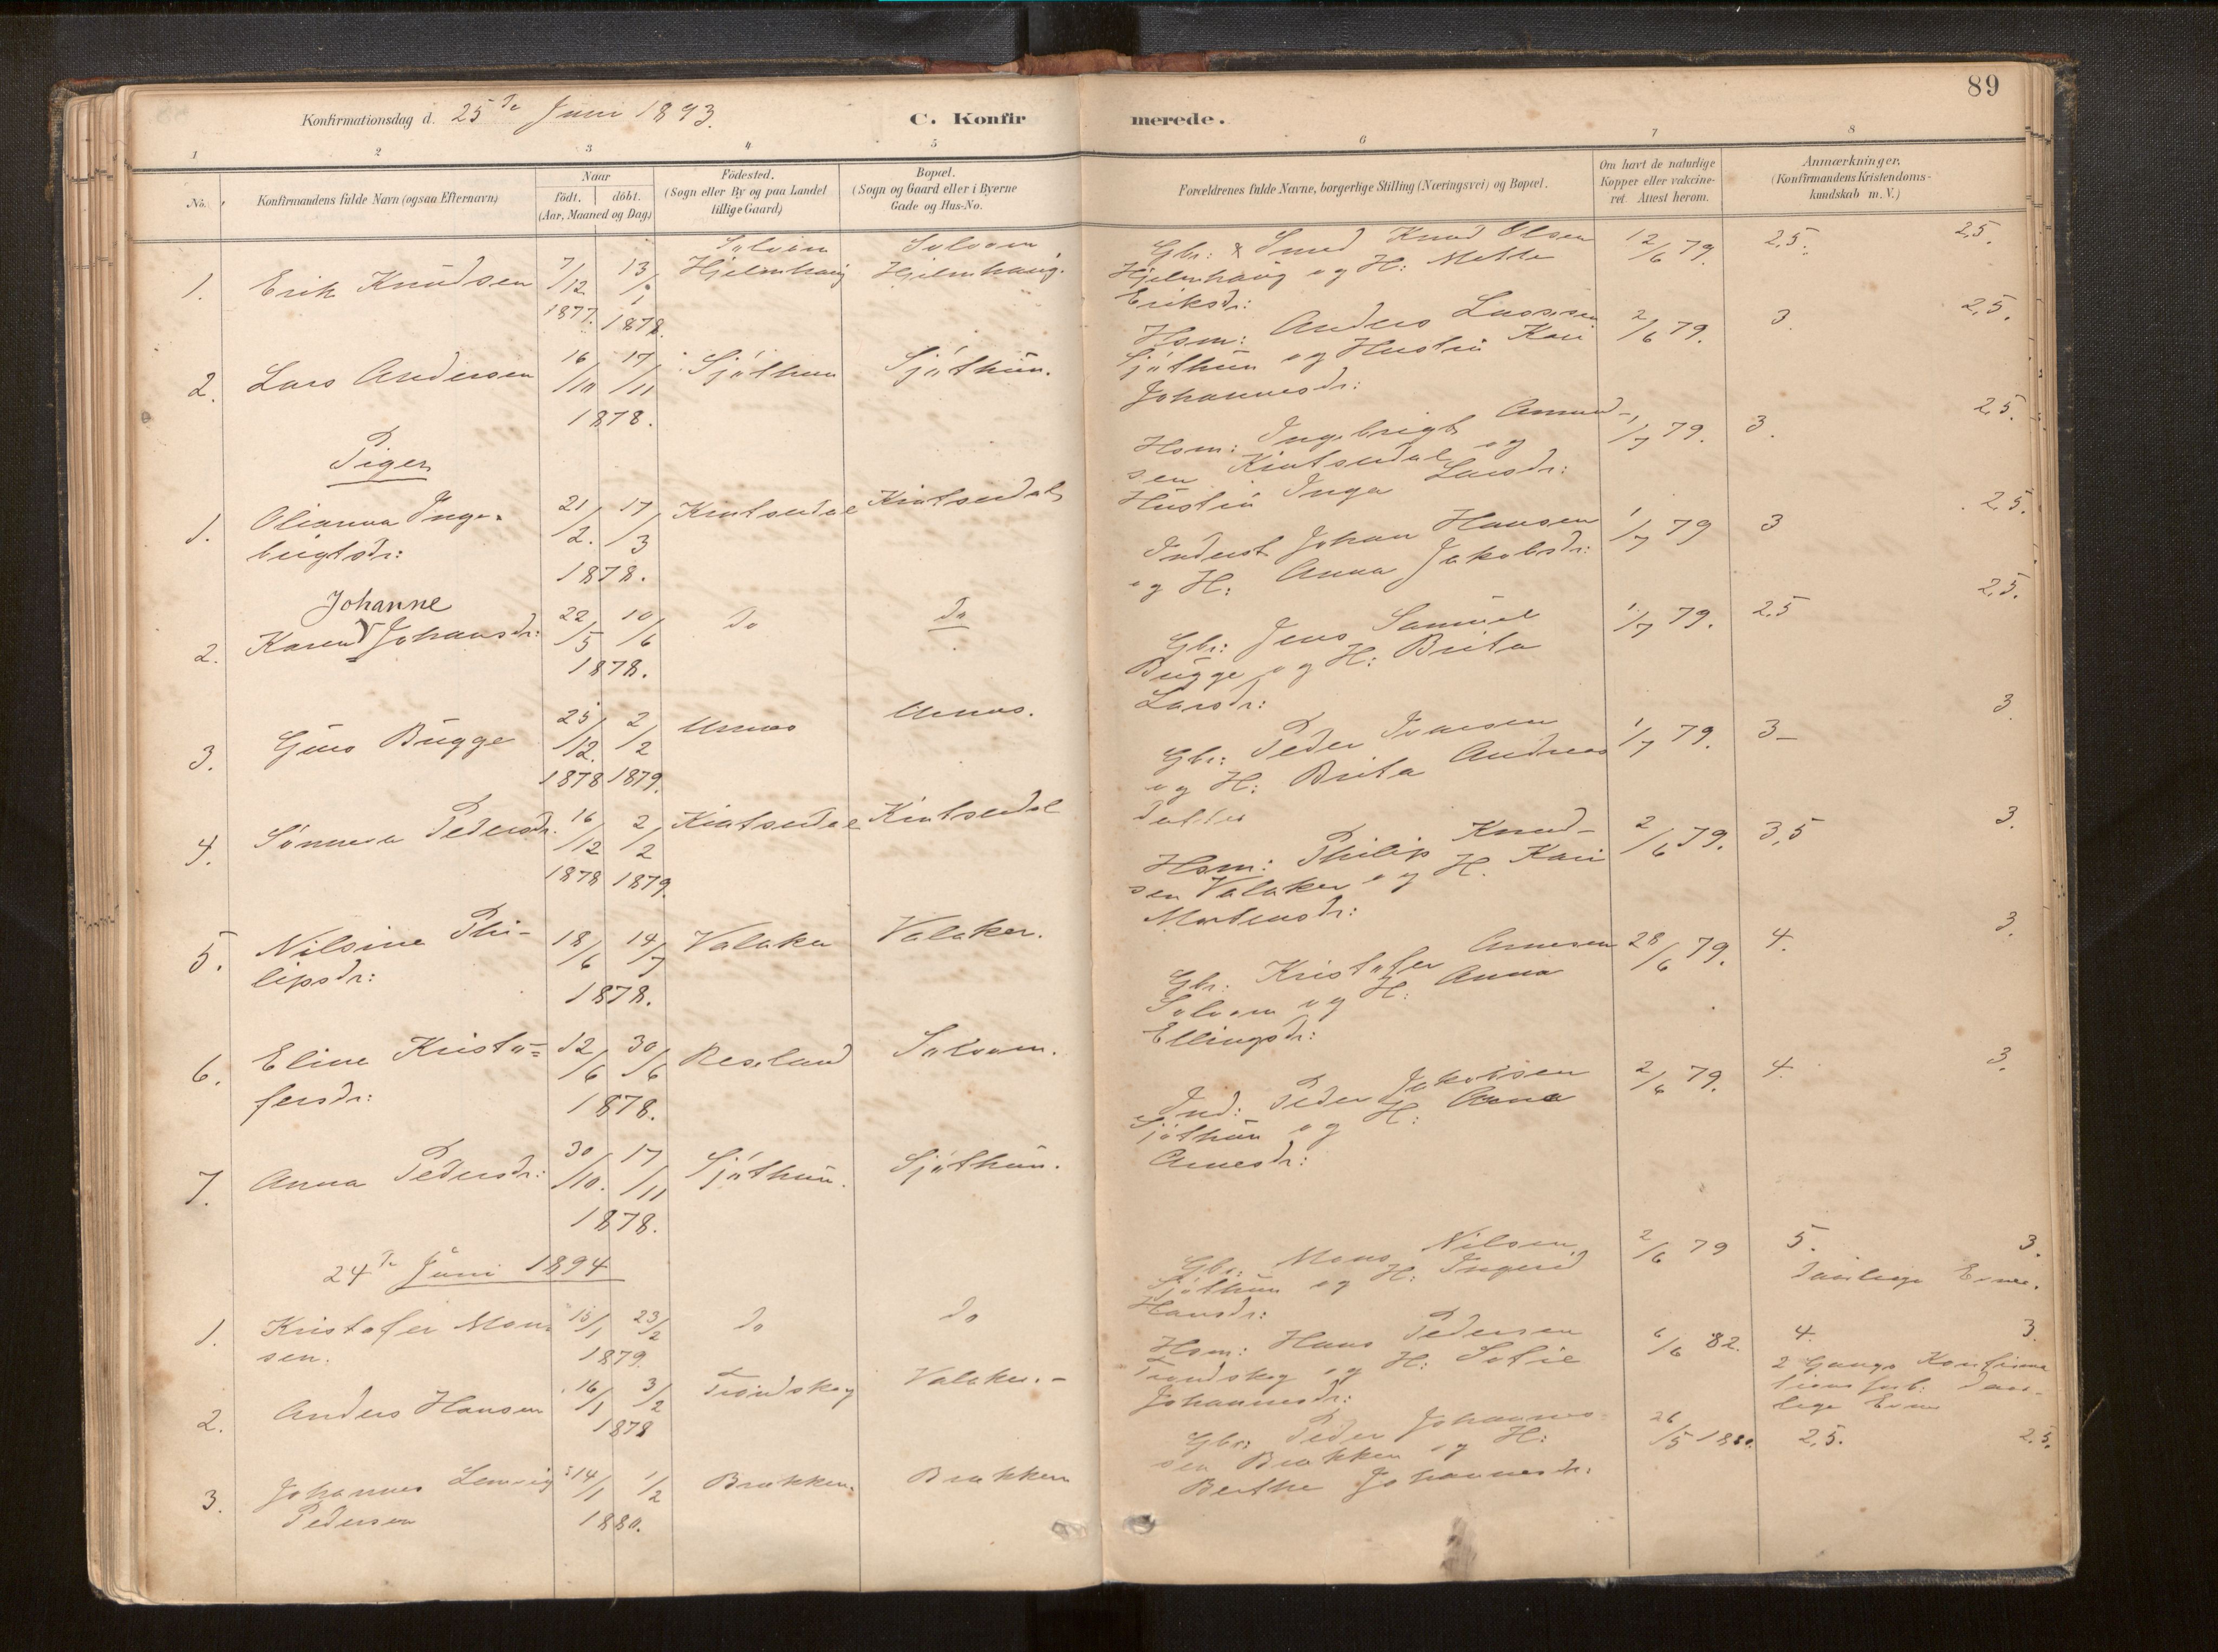 89
Konfirmationsdag d. 25de Juni 1893.
C. Konfirmerede.
1 2 3 4 5 6 7 8
No.
Konfirmandens fulde Navn (ogsaa Efternavn)
Naar
født. | døbt.
(Aar, Maaned og Dag)
Fødested.
(Sogn eller By og paa Landet
tillige Gaard)
Bopæl.
(Sogn og Gaard eller i Byerne
Gade og Hus-No.
Forældrenes fulde Navne, borgerlige Stilling (Næringsvei) og Bopæl.
Om havt de naturlige
Kopper eller vakcine-
ret. Attest herom.
Anmærkninger.
(Konfirmandens Kristendoms-
kundskab m. V.)
1. Erik Knudsen 7/12 1877. 13/1 1878.
Solvorn
Hjelmhaug
Solvorn
Hjelmhaug.
Gbr: & Smed Knud Olsen
Hjelmhaug og H: Mette
Eriksdr:
12/6 79. 2,5. 2,5.
2. Lars Andersen 16/10 17/11 1878. Sjøthun Sjøthun.
Hsm: Anders Larssen
Sjøthun og Hustru Kari
Johannesdr:
2/6 79. 3. 2,5.
Piger
1. Olianna Inge-
brigtsdr: 21/2. 17/3 1878. Kintsedal Kintsedal
Hsm: Ingebrigt Amund-
sen Kintsedal og
Hustru Inga Larsdr:
1/7 79. 3. 2,5.
Johanne
2. Karen Johansdr: 22/5 10/6 1878. do do
Inderst Johan Hansen
og H: Anna Jakobsdr:
1/7 79 3 2,5.
3. Gjøus Bugge 25/12. 1878 2/2 1879. Urnes Urnes.
Gbr: Jens Samuel
Bugge og H: Brita
Larsdr:
1/7 79. 2,5 2,5.
4. Sønneva Pedersdr. 16/12 1878 2/2 1879. Kintsedal Kintsedal
Gbr: Peder Ivarsen
og H: Brita Andreas
datter
1/7 79. 3 3
5. Nilsine Phi-
lipsdr: 18/6 14/7 1878. Valaker Valaker.
Hsm: Philip Knud-
sen Valaker og H. Kari
Martensdr:
2/6 79. 3,5 3.
6. Eline Kristo-
fersdr: 12/6 30/6 1878. Resland Solvorn.
Gbr. Kristofer Arnesen
Solvorn og H: Anna
Ellingsdr:
28/6 79. 4. 3.
7. Anna Pedersdr: 30/10. 17/11 1878. Sjøthun. Sjøthun.
Ind: Peder Jakobsen
Sjøthun og H: Anna
Arnesdr:
2/6 79. 4. 3.
24de Juni 1894
1. Kristofer Mons
sen. 15/1 23/2 1879. do do
Gbr: Mons Nilsen
Sjøthun og H: Ingerid
Hansdr:
2/6 79 5. 3.
daarlige Evner.
2. Anders Hansen 16/1 3/2 1878 Trondskog Valaker.
Hsm: Hans Pedersen
Trondskog og H: Sofie
Johannesdr:
6/6 82. 4. 3.
2 Gange Konfirma
tionsforb: daar-
lige Evner
3. Johannes Lenvig
Pedersen 14/1 1/2 1880. Brækken. Brækken
Gbr: Peder Johannes
sen Brækken og H:
Berthe Johannesdr:
26/5 1880. 2,5. 2,5.